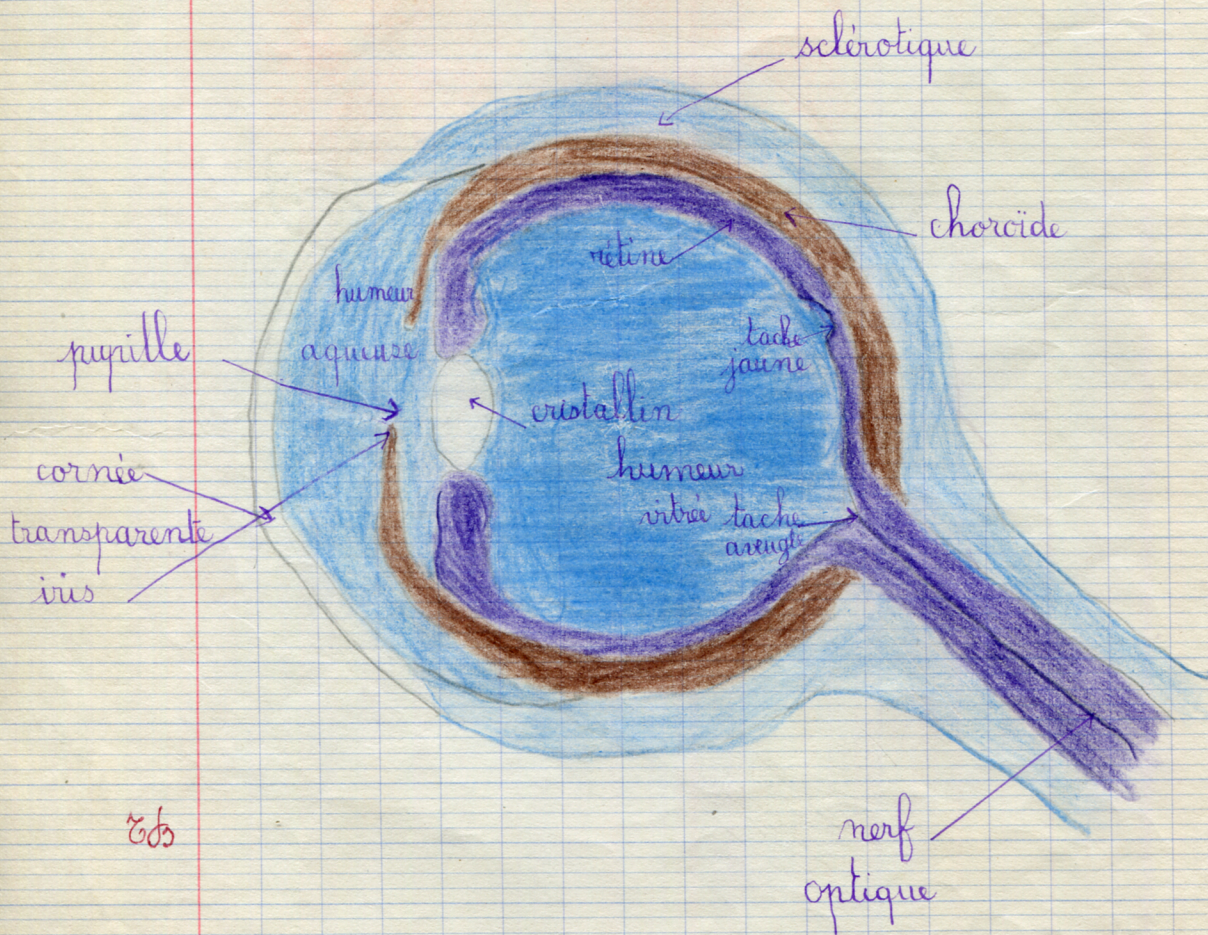 sclérotique
choroïde
rétine
humeur
aqueuse
tache
jaune
pupille
cristallin
humeur
vitrée
cornée
transparente
tache
aveugle
iris
nerf
optique